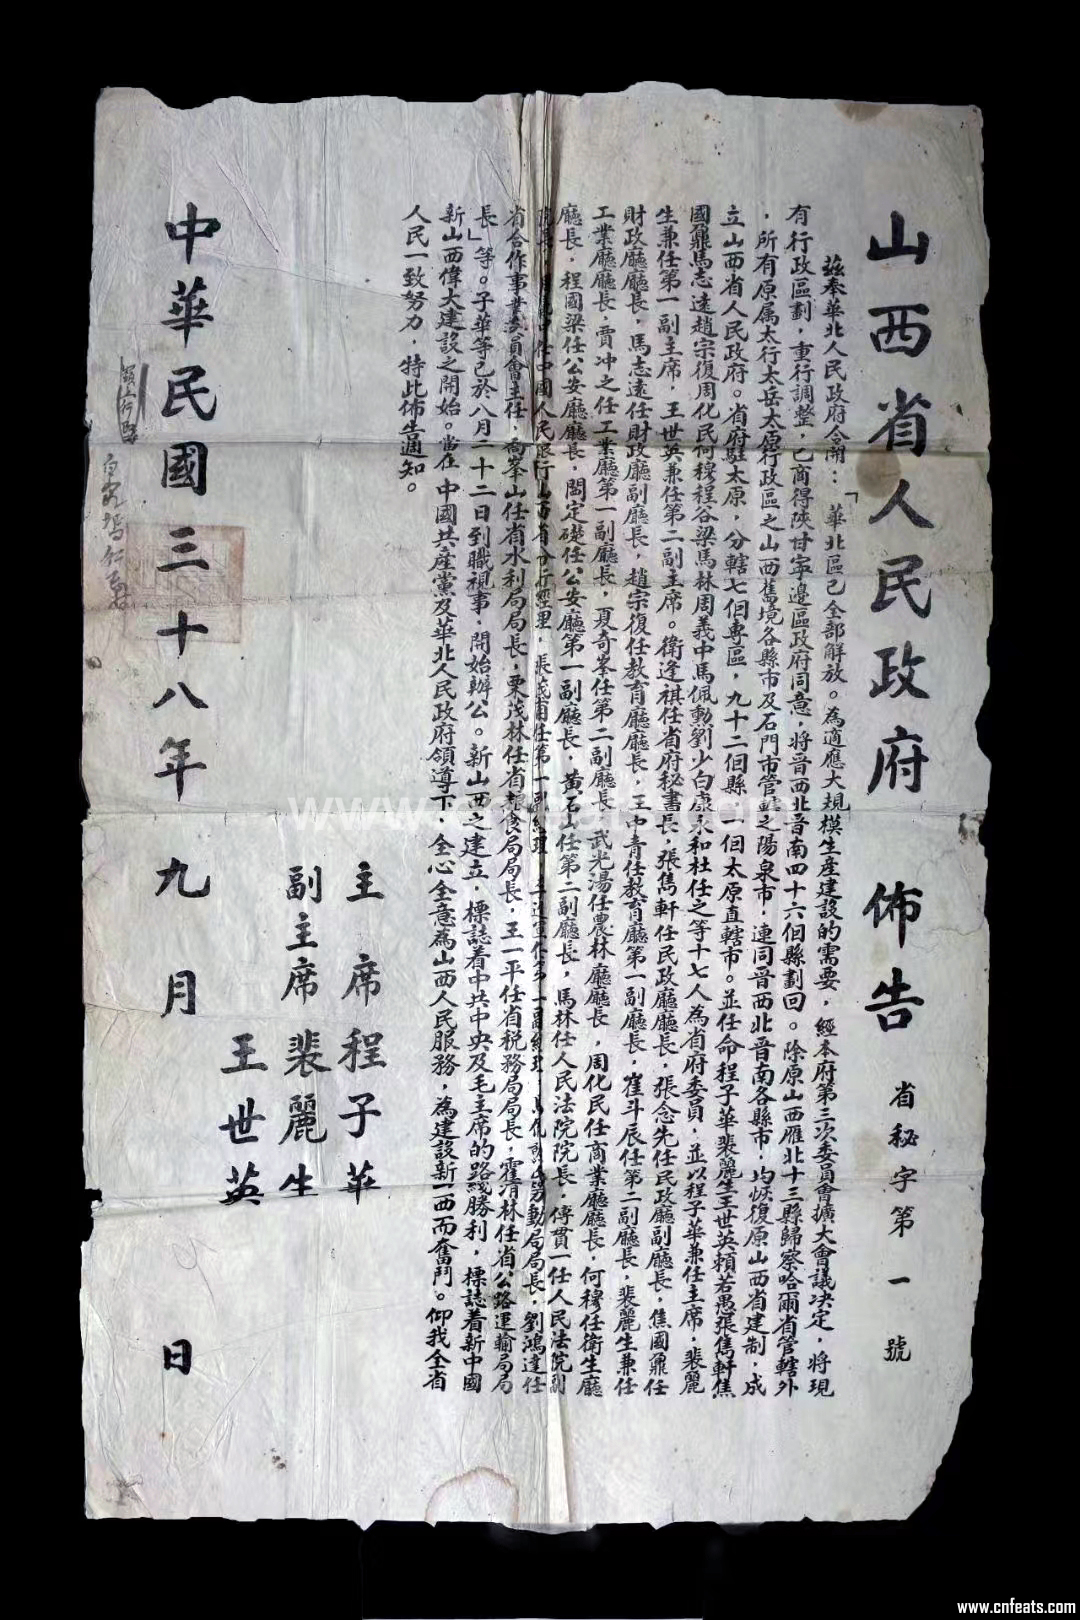 山西省人民政府 佈告
省秘字第一號
茲奉華北人民政府令開：「華北區已全部解放。為適應大規模生產建設的需要，經本府第三次委員會擴大會議決定，將現
有行政區劃，重行調整，已商得陝甘寧邊區政府同意，將晉西北晉南四十六個縣劃回。除原山西雁北十三縣歸察哈爾省管轄外
，所有原屬太行太岳太原行政區之山西舊境各縣市及石門市管轄之陽泉市，連同晉西北晉南各縣市，均恢復原山西省建制，成
立山西省人民政府。省府駐太原，分轄七個專區，九十二個縣，一個太原直轄市。並任命程子華裴麗生王世英賴若愚張雋軒焦
國鼐馬志遠趙宗復周化民何穆程谷梁馬林周義中馬佩勳劉少白康永和杜任之等十七人為省府委員，並以程子華兼任主席，裴麗
生兼任第一副主席，王世英兼任第二副主席。衛逢祺任省府秘書長，張雋軒任民政廳廳長，張念先任民政廳副廳長，焦國鼐任
財政廳廳長，馬志遠任財政廳副廳長，趙宗復任教育廳廳長，王中青任教育廳第一副廳長，崔斗辰任第二副廳長，裴麗生兼任
工業廳廳長，賈冲之任工業廳第一副廳長，夏奇峯任第二副廳長，武光湯任農林廳廳長，周化民任商業廳廳長，何穆任衛生廳
廳長，程國梁任公安廳廳長，閻定礎任公安廳第一副廳長，黃石山任第二副廳長，馬林任人民法院院長，傅貫一任人民法院副
院長，任中國人民銀行山西省分行經理，張茂甫任第一副經理，任第二副經理，勞動局局長，劉鴻達任
省合作事業委員會主任，喬峯山任省水利局局長，栗茂林任省糧食局局長，王一平任省稅務局局長，霍清林任省公路運輸局局
長」等。子華等已於八月二十二日到職視事，開始辦公。新山西之建立，標誌着中共中央及毛主席的路綫勝利，標誌着新中國
新山西偉大建設之開始。當在中國共產黨及華北人民政府領導下，全心全意為山西人民服務，為建設新山西而奮鬥。仰我全省
人民一致努力，特此佈告週知。
主席程子華
副主席裴麗生
王世英
中華民國三十八年九月 日
www.cnfeats.com
www.cnfeats.com